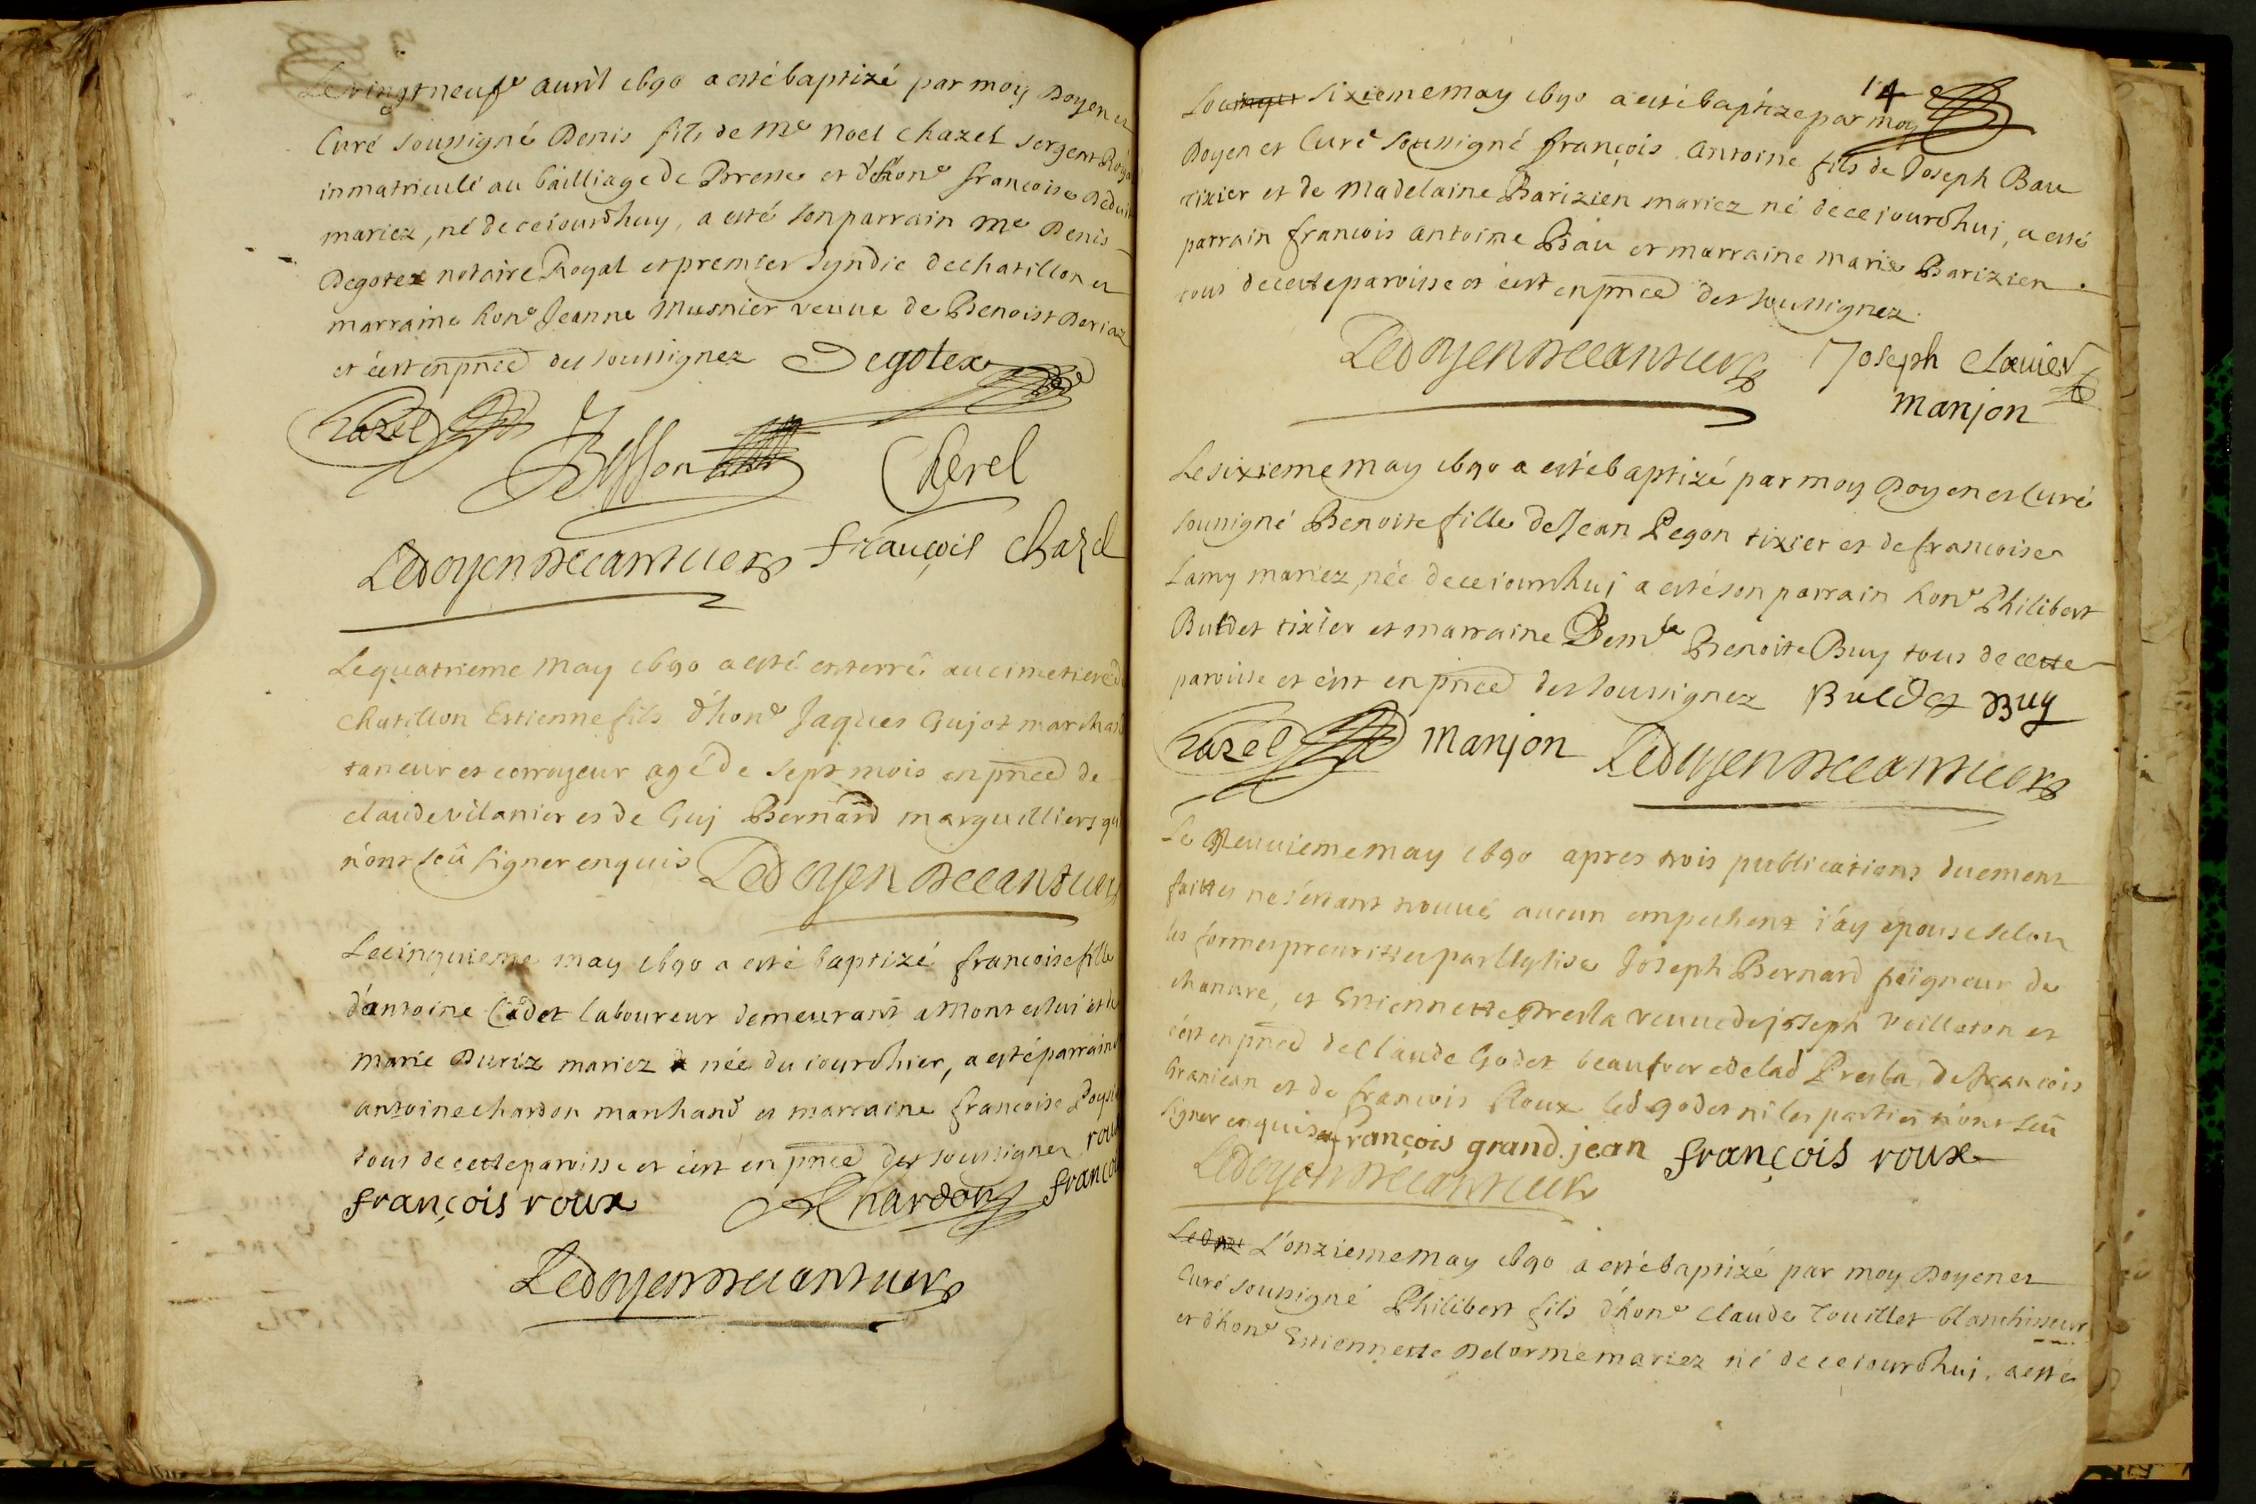 Le vingt neufe auril 1690 a esté baptizé par moy Doyen et
Curé soussigné Denis fils de Me Noel Chazel sergent Royal
inmatriculé au bailliage de Bresse et d'hone françoise
mariez, né de ce iourdhuy, a esté son parrain Me Denis
Degotex notaire Royal et premier syndic de chatillon et
marraine hone Jeanne Musnier veuue de Benoist
et c'est en pnce des soussignez Degotex
Chazel Besson Cherel
Le doyen François Chazel
Le quatrieme May 1690 a esté enterré au cimetiere de
chatillon Estienne fils d'hone Jaques Gujot marchand
taneur et corroyeur agé de sept mois en pnce de
claude vilanier et de Guj Bernard marguilliers qui
n'ont sceû signer enquis Le doyen
Le cinquieme may 1690 a esté baptizé francoise fille
d'antoine Cadet laboureur demeurant a Mont et de
Marie Duriz mariez née du iourdhier, a esté parrain
antoine chardon marchand et marraine francoise
tous de cette paroisse et c'est en pnce des soussignez
françois roux Chardon
Le doyen
14
Le sixieme may 1690 a esté baptize par moy
Doyen et Curé soussigné françois Antoine fils de Joseph Bau
tixier et de Madelaine Barizien mariez né de ce iourdhui, a esté
parrain francois antoine Bau et marraine marie Barizien
tous de cette paroisse et c'est en pnce des soussignez.
Le doyen Joseph Clauier
manjon
Le sixieme may 1690 a esté baptizé par moy Doyen et Curé
soussigné Benoite fille de Jean Pegon tixier et de francoise
Lamy mariez, née de ce iourdhuj a esté son parrain hone Philibert
Buldet tixier et marraine Demlle Benoite Buy tous de cette
paroisse et c'est en pnce des soussignez Buldet Buy
Chazel manjon Le doyen
Le Neuuieme may 1690 apres trois publications duement
faittes ne s'estant trouué aucun empechent i'ay épouse selon
les formes prescrittes par l'Eglise Joseph Bernard peigneur de
chanure, et Estiennette Presla veuue de joseph Veilleton et
c'est en pnce de Claude Godet beaufrere de lad Presla, de francois
Granjean et de francois Roux led Godet ni les parties n'ont sceu
signer enquis françois grand.jean françois roux
Le doyen
L'onzieme may 1690 a esté baptizé par moy Doyen et
Curé soussigné Philibert fils d'hone Claude Touillet blanchisseur
et d'hone Estiennette Delorme mariez né de ce iourdhuj, a esté